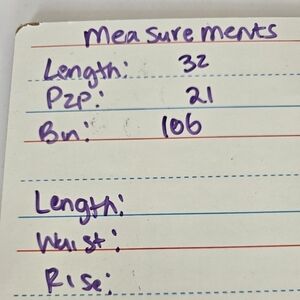 Measurements
Length: 32
P2P: 21
Bn: 106
Length:
Waist:
Rise: